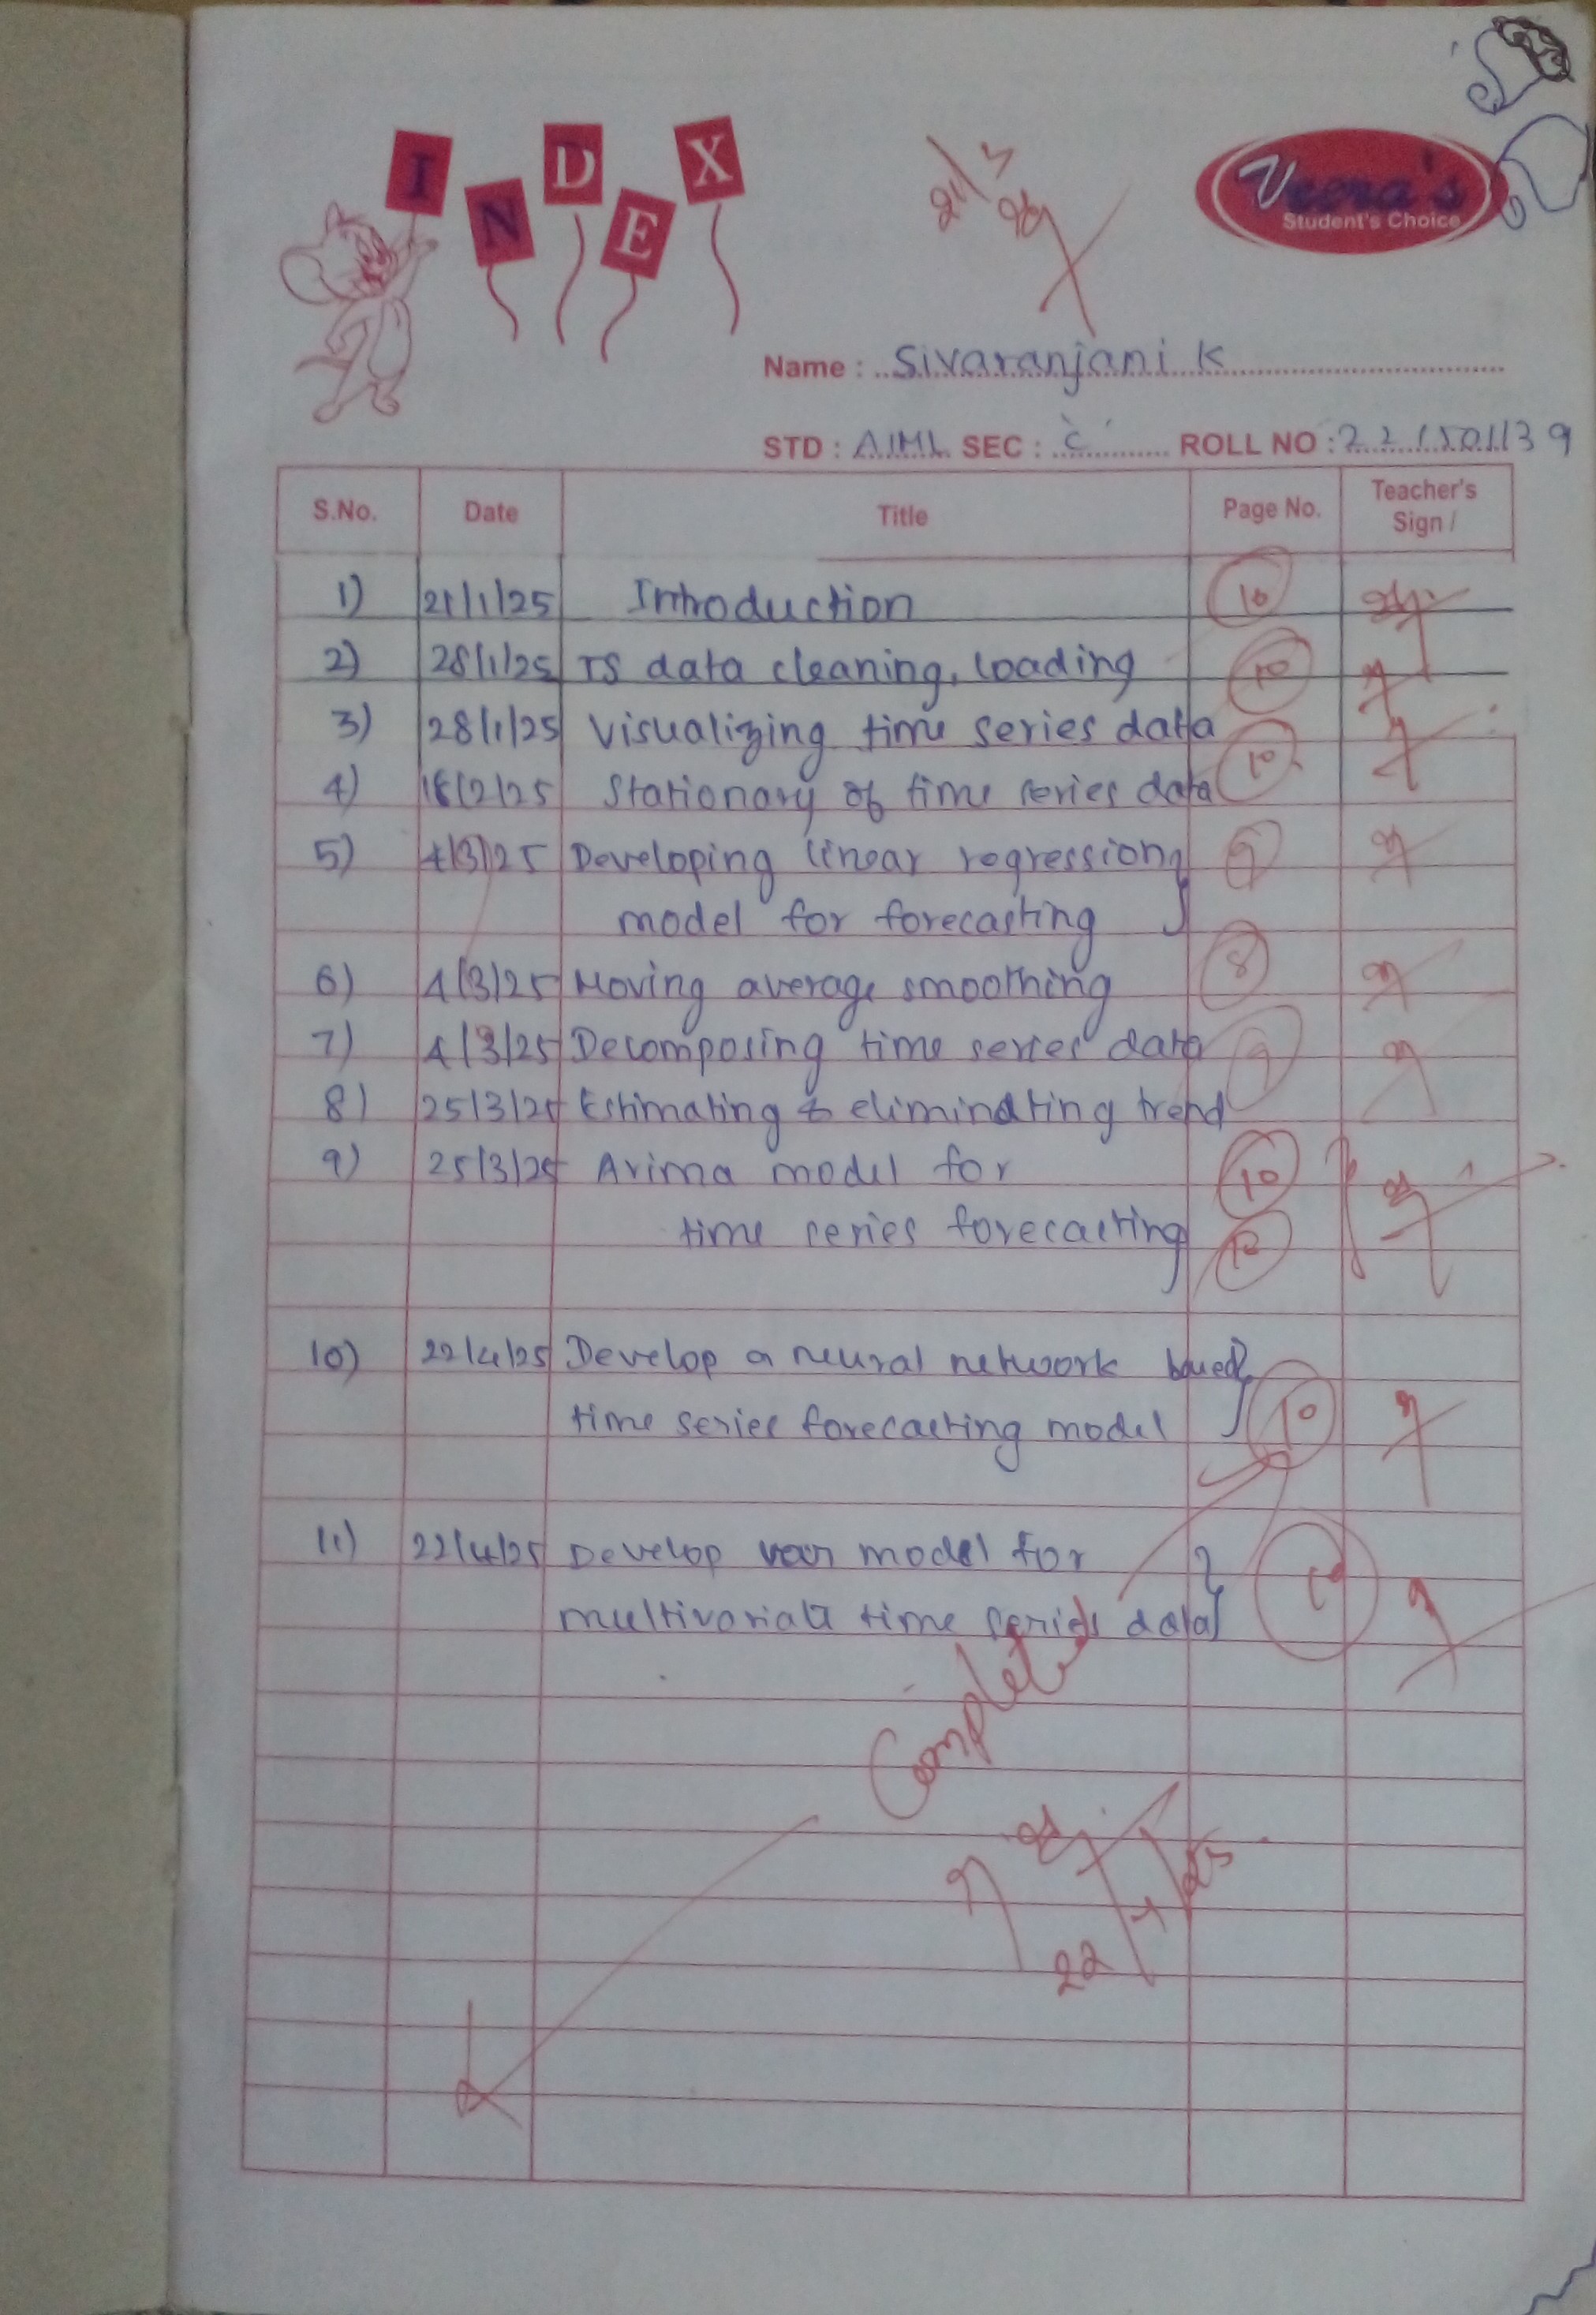 INDEX
Veera's
Student's Choice
Name : Sivaranjani K
STD : AIML SEC : C ROLL NO : 221501139
S.No. Date Title Page No. Teacher's Sign /
1) 21/1/25 Introduction 10
2) 28/1/25 TS data cleaning, loading 10
3) 28/1/25 Visualizing time series data
4) 18/2/25 Stationary of time series data 10
5) 4/3/25 Developing linear regression 9
model for forecasting
6) 4/3/25 Moving average smoothing 8
7) 4/3/25 Decomposing time series data 9
8) 25/3/25 Estimating & eliminating trend
9) 25/3/25 Arima model for 10
time series forecasting 10
10) 22/4/25 Develop a neural network based
time series forecasting model 10
11) 22/4/25 Develop var model for 10
multivariate time series data
Completed
22/4/25